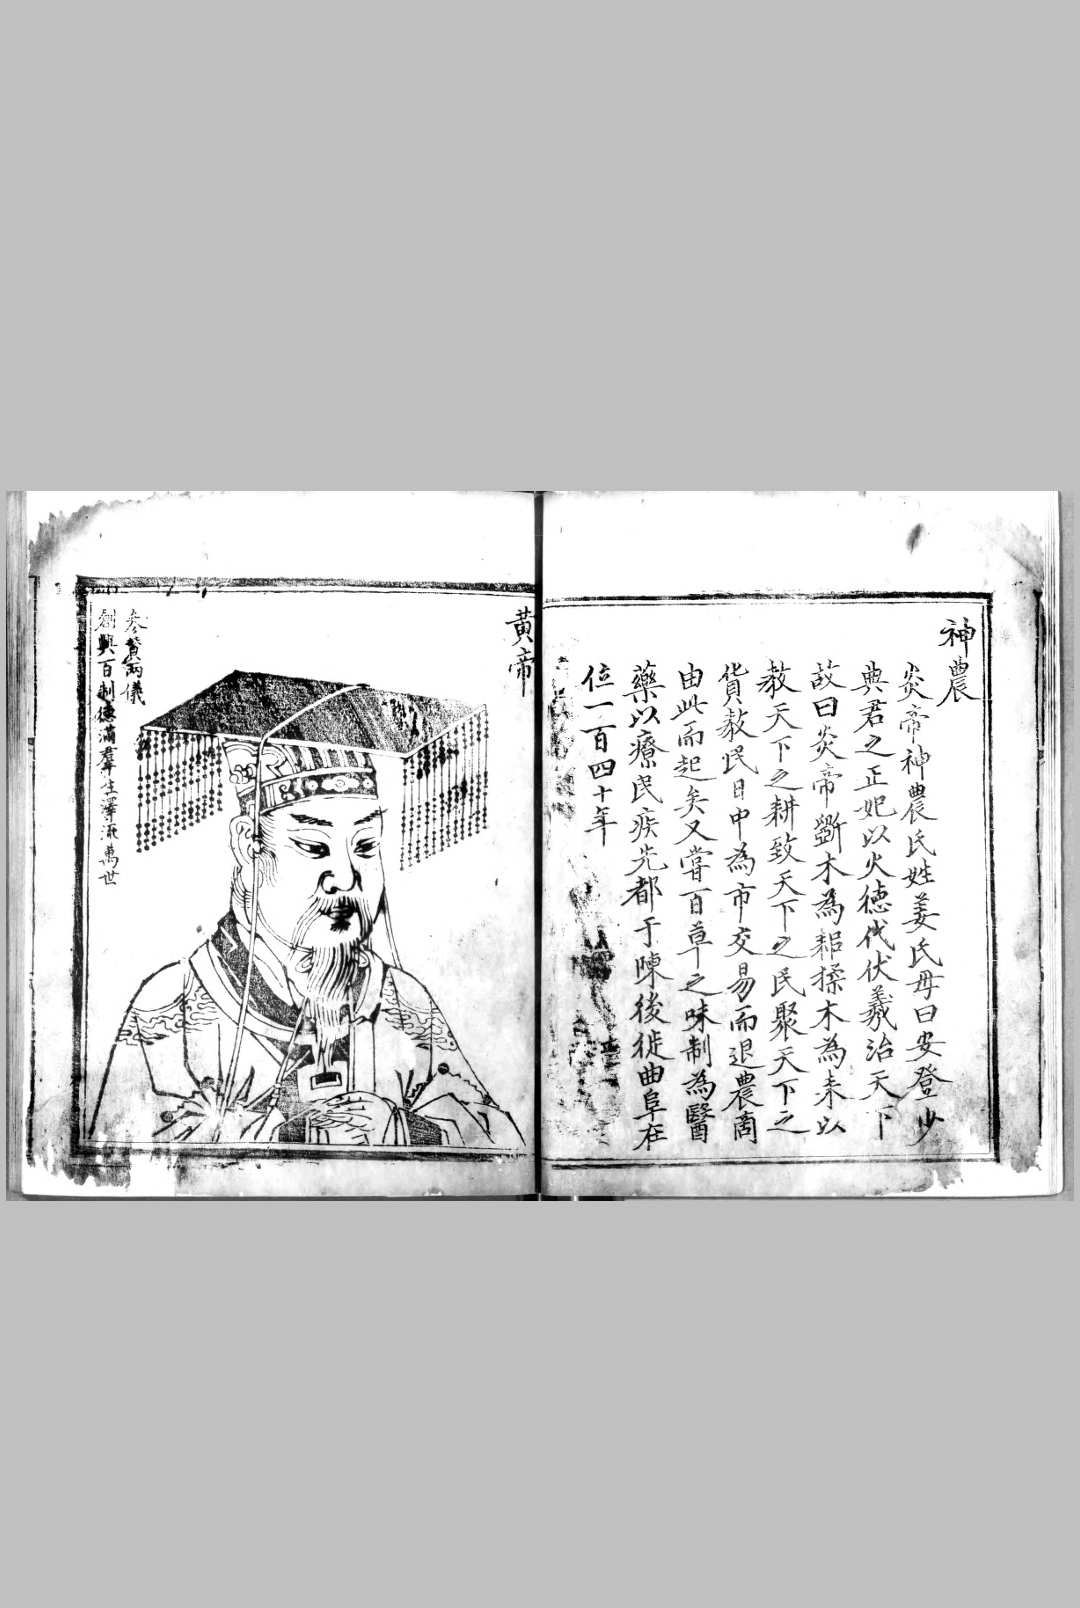 神農
炎帝神農氏姓姜氏母曰安登少
典君之正妃以火德代伏羲治天下
故曰炎帝斲木為耜揉木為耒以
教天下之耕致天下之民聚天下之
貨教民日中為市交易而退農商
由此而起矣又嘗百草之味制為醫
藥以療民疾先都于陳後徙曲阜在
位一百四十年
黃帝
參贊兩儀
創興百制德滿羣生澤流萬世